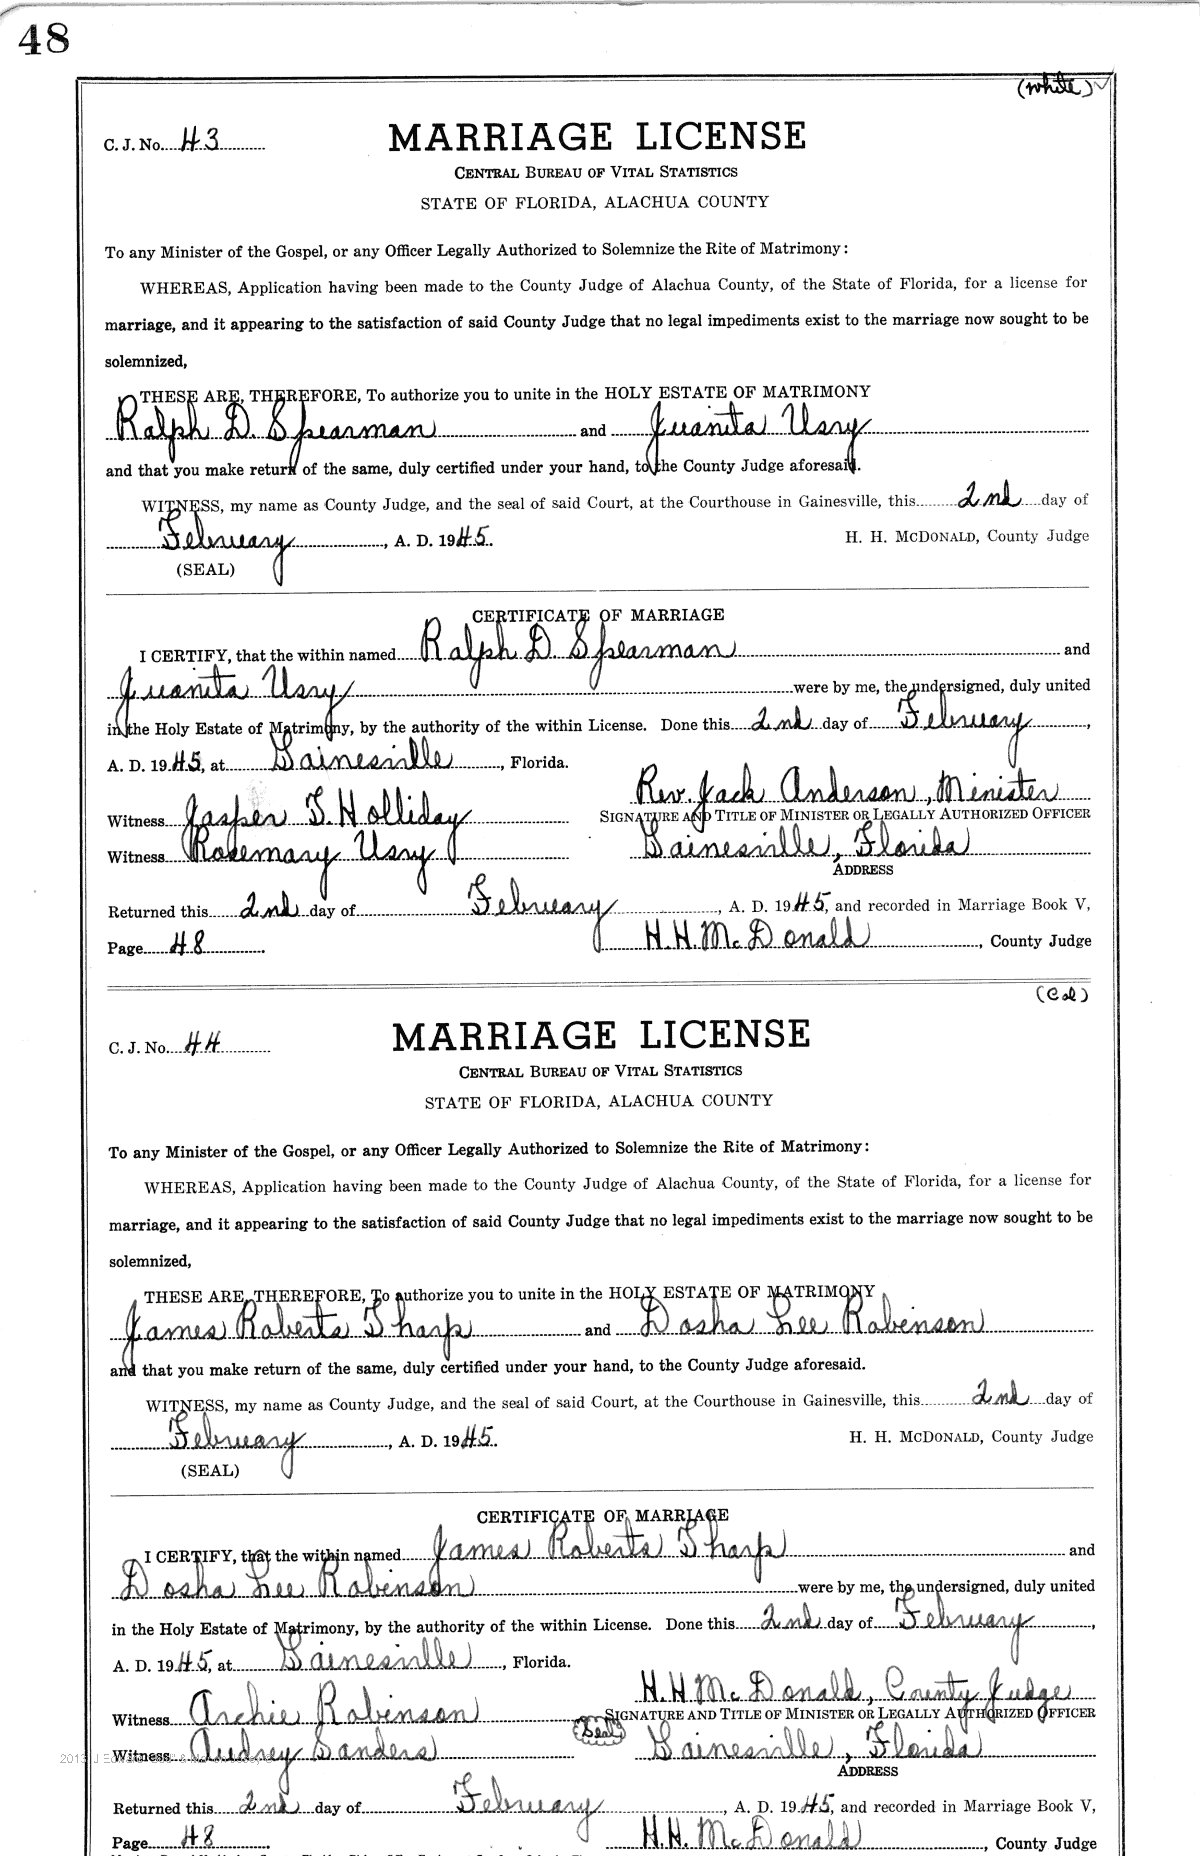 48
(white)
C. J. No. 43
MARRIAGE LICENSE
CENTRAL BUREAU OF VITAL STATISTICS
STATE OF FLORIDA, ALACHUA COUNTY
To any Minister of the Gospel, or any Officer Legally Authorized to Solemnize the Rite of Matrimony:
WHEREAS, Application having been made to the County Judge of Alachua County, of the State of Florida, for a license for
marriage, and it appearing to the satisfaction of said County Judge that no legal impediments exist to the marriage now sought to be
solemnized,
THESE ARE, THEREFORE, To authorize you to unite in the HOLY ESTATE OF MATRIMONY
Ralph D. Spearman and Juanita Usry
and that you make return of the same, duly certified under your hand, to the County Judge aforesaid.
WITNESS, my name as County Judge, and the seal of said Court, at the Courthouse in Gainesville, this 2nd day of
February, A. D. 1945. H. H. MCDONALD, County Judge
(SEAL)
CERTIFICATE OF MARRIAGE
I CERTIFY, that the within named Ralph D. Spearman and
Juanita Usry were by me, the undersigned, duly united
in the Holy Estate of Matrimony, by the authority of the within License. Done this 2nd day of February,
A. D. 1945, at Gainesville, Florida.
Rev. Jack Anderson, Minister
Witness Jasper T. Holliday SIGNATURE AND TITLE OF MINISTER OR LEGALLY AUTHORIZED OFFICER
Witness Rosemary Usry Gainesville, Florida
ADDRESS
Returned this 2nd day of February, A. D. 1945, and recorded in Marriage Book V,
Page 48 H. H. McDonald, County Judge
(Col)
C. J. No. 44
MARRIAGE LICENSE
CENTRAL BUREAU OF VITAL STATISTICS
STATE OF FLORIDA, ALACHUA COUNTY
To any Minister of the Gospel, or any Officer Legally Authorized to Solemnize the Rite of Matrimony:
WHEREAS, Application having been made to the County Judge of Alachua County, of the State of Florida, for a license for
marriage, and it appearing to the satisfaction of said County Judge that no legal impediments exist to the marriage now sought to be
solemnized,
THESE ARE, THEREFORE, To authorize you to unite in the HOLY ESTATE OF MATRIMONY
James Roberts Tharp and Dosha Lee Robinson
and that you make return of the same, duly certified under your hand, to the County Judge aforesaid.
WITNESS, my name as County Judge, and the seal of said Court, at the Courthouse in Gainesville, this 2nd day of
February, A. D. 1945. H. H. MCDONALD, County Judge
(SEAL)
CERTIFICATE OF MARRIAGE
I CERTIFY, that the within named James Roberts Tharp and
Dosha Lee Robinson were by me, the undersigned, duly united
in the Holy Estate of Matrimony, by the authority of the within License. Done this 2nd day of February,
A. D. 1945, at Gainesville, Florida.
H. H. McDonald, County Judge
Witness Archie Robinson (Seal) SIGNATURE AND TITLE OF MINISTER OR LEGALLY AUTHORIZED OFFICER
Witness Audrey Sanders Gainesville, Florida
ADDRESS
Returned this 2nd day of February, A. D. 1945, and recorded in Marriage Book V,
Page 48 H. H. McDonald, County Judge